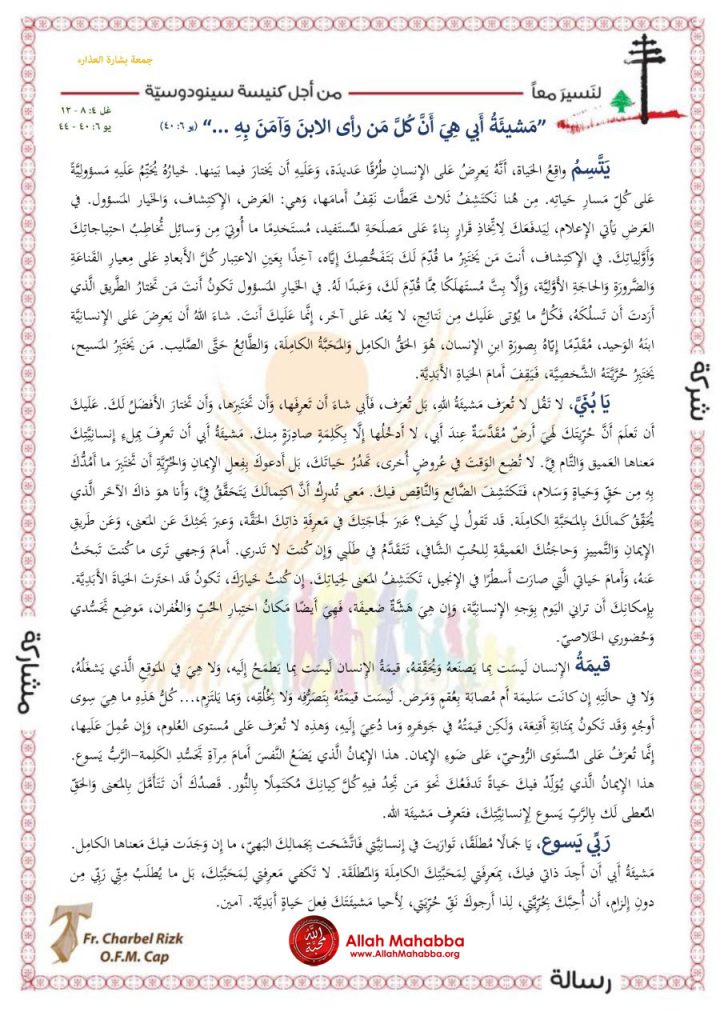 جمعة بشارة العذراء
لنَسيرَ معاً
من أجل كنيسة سينودوسيّة
غل ٤: ٨ - ١٢
يو ٦: ٤٠ - ٤٤
”مَشيئَةُ أَبي هِيَ أَنَّ كُلَّ مَن رأى الابنَ وَآمَنَ بِهِ ...“ (يو ٦: ٤٠)
يَتَّسِمُ واقِعُ الحَياة، أَنَّهُ يَعرِضُ عَلى الإِنسانِ طُرُقًا عَديدَة، وَعَلَيهِ أَن يَختارَ فيما بَينها. خَيارُهُ يُحَتِّمُ عَلَيهِ مَسؤوليَّةً
عَلى كُلِّ مَسارِ حَياتِه. مِن هُنا نَكتَشِفُ ثَلاث مَحَطَّات نَقِفُ أَمامَها، وَهي: العَرض، الإِكتِشاف، وَالخَيار المَسؤول. في
العَرضِ يَأتي الإِعلام، لِيَدفَعَكَ لِاتِّخاذِ قَرارٍ بِناءً عَلى مَصلَحَةِ المُستَفيد، مُستَخدِمًا ما أُوتِيَ مِن وَسائِل تُخاطِبُ احتِياجاتِكَ
وَأَوَّلِياتِكَ. في الإِكتِشاف، أَنتَ مَن يَختَبِرُ ما قُدِّمَ لَكَ بِتَفَحُّصِكَ إِيَّاه، آخِذًا بِعَينِ الاعتِبار كُلَّ الأَبعادِ عَلى مِعيارِ القَناعَةِ
وَالضَّرورَةِ وَالحاجَةِ الأَوَّلِيَّة، وَإِلَّا بِتَّ مُستَهلَكًا مِمَّا قُدِّمَ لَكَ، وَعَبدًا لَهُ. في الخَيارِ المَسؤول تَكونُ أَنتَ مَن تَختارُ الطَّريق الَّذي
أَرَدتَ أَن تَسلُكَهُ، فَكُلُّ ما يُؤتى عَلَيكَ مِن نَتائِج، لا يَعُد عَلى آخَر، إِنَّما عَلَيكَ أَنتَ. شاءَ اللهُ أَن يَعرِضَ عَلى الإِنسانِيَّة
ابنَهُ الوَحيد، مُقَدِّمًا إِيَّاهُ بِصورَةِ ابنِ الإِنسان، هُوَ الحَقُّ الكامِل وَالمَحَبَّةُ الكامِلَة، وَالطَّائِعُ حَتَّى الصَّليب. مَن يَختَبِرُ المَسيح،
يَختَبِرُ حُرِّيَّتَهُ الشَّخصِيَّة، فَيَقِفَ أَمامَ الحَياةِ الأَبَدِيَّة.
يَا بُنَيَّ، لا تَقُل لا تُعرَف مَشيئَةُ اللهِ، بَل تُعرَف، فَأَبي شاءَ أَن تَعرِفَها، وَأَن تَختَبِرَها، وَأَن تَختارَ الأَفضَلُ لَكَ. عَلَيكَ
أَن تَعلَمَ أَنَّ حُرِّيَتَكَ لَهِيَ أَرضٌ مُقَدَّسَةٌ عِندَ أَبي، لا أَدخُلُها إِلَّا بِكَلِمَةٍ صادِرَةٍ مِنكَ. مَشيئَةُ أَبي أَن تَعرِفَ بِمِلءِ إِنسانِيَّتِكَ
مَعناها العَميق وَالتَّام فِيَّ. لا تُضِعِ الوَقتَ في عُروضٍ أُخرى، تَهدُرُ حَياتَكَ، بَل أَدعوكَ بِفِعلِ الإِيمانِ وَالحُرِّيَّةِ أَن تَختَبِرَ ما أَمُدُّكَ
بِهِ مِن حَقٍّ وَحَياةٍ وَسَلام، فَتَكتَشِفَ الضَّائِع وَالنَّاقِص فيكَ. مَعي تُدرِكُ أَنَّ اكتِمالَكَ يَتَحَقَّقُ فِيَّ، وَأَنا هوَ ذاكَ الآخَر الَّذي
يُحَقِّقُ كَمالَكَ بِالمَحَبَّةِ الكامِلَة. قَد تَقولُ لي كَيف؟ عَبرَ لَجاجَتِكَ في مَعرِفَةِ ذاتِكَ الحَقَّة، وَعبرَ بَحثِكَ عَن المَعنى، وَعَن طَريقِ
الإِيمانِ وَالتَّمييزِ وَحاجَتُكَ العَميقةِ لِلحُبِّ الشَّافي، تَتَقدَّمُ في طَلَبي وَإِن كُنتَ لا تَدري. أَمامَ وَجهي تَرى ما كُنتَ تَبحَثُ
عَنهُ، وَأَمامَ حَياتي الَّتي صارَت أَسطُرًا في الإِنجيل، تَكتَشِفُ المَعنى لِحَياتِكَ. إِن كُنتُ خَيارَكَ، تَكونُ قَد اختَرتَ الحَياةَ الأَبَدِيَّة.
بِإِمكانِكَ أَن تَراني اليَوم بِوَجهِ الإِنسانِيَّة، وَإِن هِيَ هَشَّةٌ ضَعيفَة، فَهِيَ أَيضًا مَكانُ اختِبارِ الحُبِّ وَالغُفران، مَوضِع تَجَسُّدي
وَحُضوري الخَلاصِيّ.
قيمَةُ الإِنسان لَيسَت بِما يَصنَعهُ وَيُحَقِّقهُ، قيمَةُ الإِنسان لَيسَت بِما يَطمَحُ إِليه، وَلا هِيَ في المَوقِعِ الَّذي يَشغَلُهُ،
وَلا في حالَتِهِ إِن كانَت سَليمَة أَم مُصابَة بِعُقمٍ وَمَرض. لَيسَت قيمَتُهُ بِتَصَرُّفِه وَلا بِخُلقِه، وَبِما يَلتَزِم،... كُلُّ هَذِهِ ما هِيَ سِوى
أَوجُهٍ وَقَد تَكونُ بِمَثابَةِ أَقنِعَة، وَلَكِن قيمَتُهُ في جَوهَرِهِ وَما دُعِيَ إِلَيهِ، وَهذِه لا تُعرَف عَلى مُستوى العُلوم، وَإِن عُمِلَ عَلَيها،
إِنَّما تُعرَفُ عَلى المُستَوى الرُّوحيّ، عَلى ضَوءِ الإِيمان. هذا الإِيمانُ الَّذي يَضَعُ النَّفسَ أَمامَ مِرآةِ تَجَسُّدِ الكَلِمة-الرَّبُّ يَسوع.
هذا الإِيمانُ الَّذي يُوَلِّدُ فيكَ حَياةً تَدفَعُكَ نَحوَ مَن تَجِدُ فيهِ كُلَّ كِيانِكَ مُكتَمِلًا بِالنُّور. قَصدُكَ أَن تَتَأَمَّلَ بِالمَعنى وَالحَقِّ
المُعطى لَك بِالرَّبِّ يَسوع لإِنسانِيَّتِكَ، فَتَعرِف مَشيئَة الله.
رَبِّي يَسوع، يَا جَمالًا مُطلَقًا، تَوارَيتَ في إِنسانِيَّتي فَاتَّشَحَت بِجَمالِكَ البَهيّ، ما إِن وَجَدَت فيكَ مَعناها الكامِل.
مَشيئَةُ أَبي أَن أَجِدَ ذاتي فيكَ، بِمَعرِفَتي لِمَحَبَّتِكَ الكامِلَة وَالمُطلَقَة. لا تَكفي مَعرِفتي لِمَحَبَّتِكَ، بَل ما يُطلَبُ مِنِّي رَبِّي مِن
دونِ إِلزام، أَن أُحِبَّكَ بِحُرِّيَّتي، لِذا أَرجوكَ نَقِّ حُرِّيَتي، لِأَحيا مَشيئَتَكَ فِعلَ حَياةٍ أَبَدِيَّة. آمين.
شركة
مشاركة
رسالة
Fr. Charbel Rizk
O.F.M. Cap
الله محبة
Allah Mahabba
www.AllahMahabba.org